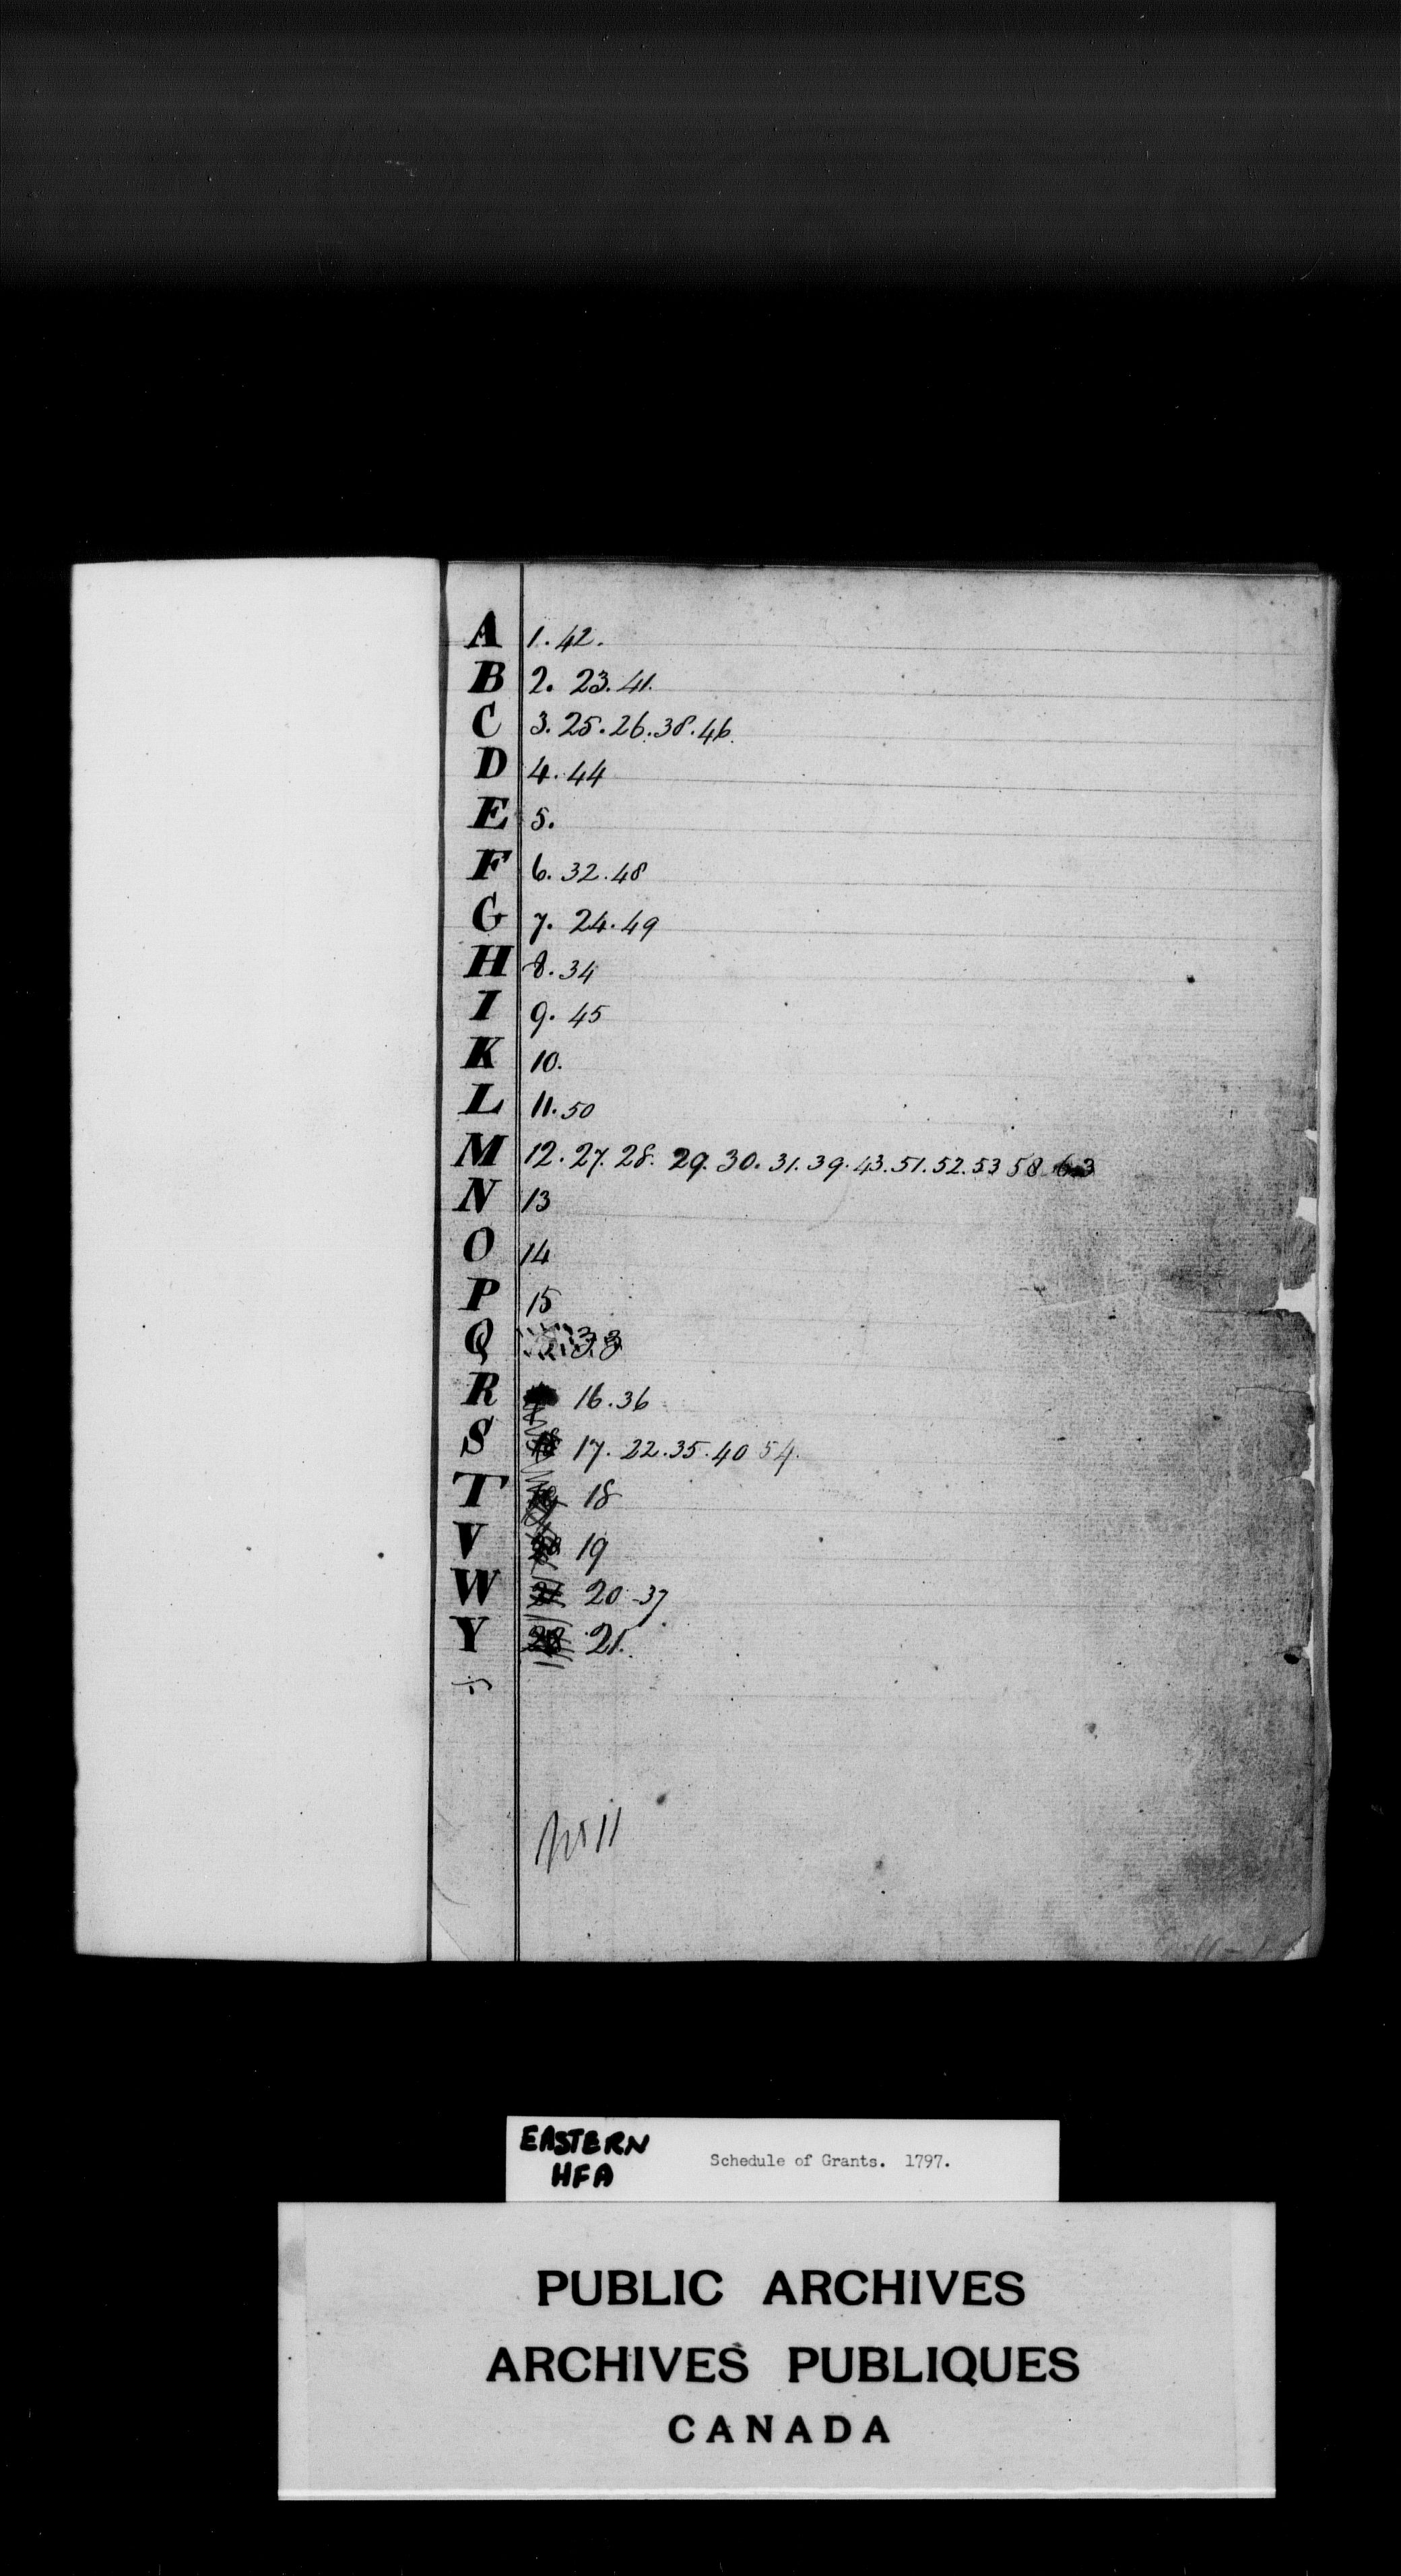 A 1. 42.
B 2. 23. 41.
C 3. 25. 26. 38. 46.
D 4. 44
E 5.
F 6. 32. 48
G 7. 24. 49
H 8. 34
I 9. 45
K 10.
L 11. 50
M 12. 27. 28. 29. 30. 31. 39. 43. 51. 52. 53 58 63
N 13
O 14
P 15
Q 33
R 16. 36
S 18 17. 22. 35. 40 54.
T 18
V 19
W 21 20 - 37
Y 21.
No 11
EASTERN
HFA
Schedule of Grants. 1797.
PUBLIC ARCHIVES
ARCHIVES PUBLIQUES
CANADA